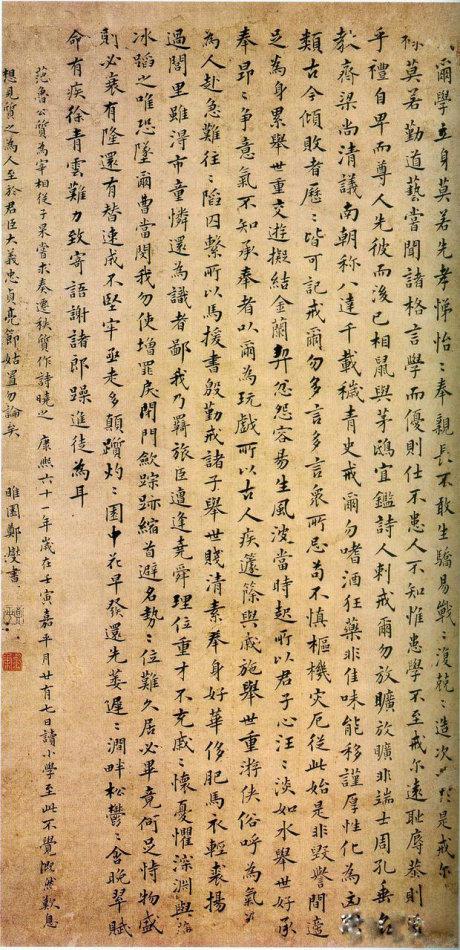 爾學立身莫若先孝悌怡〻奉親長不敢生驕易戰〻復兢〻造次必於是戒尔
祿莫若勤道藝嘗聞諸格言學而優則仕不患人不知惟患學不至戒尔遠恥辱恭則
乎禮自卑而尊人先彼而後己相鼠與茅鴟宜鑑詩人刺戒爾勿放曠放曠非端士周孔垂名
教齊梁尚清議南朝称八達千載穢青史戒爾勿嗜酒狂藥非佳味能移謹厚性化為凶
類古今傾敗者歷〻皆可記戒爾勿多言多言衆所忌苟不慎樞機灾厄從此始是非毀譽間適
足為身累舉世重交遊擬結金蘭契忿怨容易生風波當時起所以君子心汪〻淡如水舉世好承
奉昂〻争意氣不知承奉者以爾為玩戲所以古人疾籧篨與戚施舉世重游俠俗呼為氣
為人赴急難往〻陷囚繫所以馬援書殷勤戒諸子舉世賤清素奉身好華侈肥馬衣輕裘揚
過閭里雖得市童憐還為識者鄙我乃羇旅臣遭逢堯舜理位重才不充戚〻懷憂懼深淵與
冰蹈之唯恐墜爾曹當閔我勿使增罪戾閉門歛踪跡縮首避名勢〻位難久居必畢竟何足恃物盛
則必衰有隆還有替速成不堅牢亟走多顛躓灼〻園中花早發還先萎遲〻澗畔松鬱〻含晚翠賦
命有疾徐青雲難力致寄語謝諸郎躁進徒為耳
范魯公質為宰相從子杲嘗求奏遷秩質作詩曉之 康熙六十一年歲在壬寅嘉平月廿有七日讀小學至此不覺慨然歎息
想見質之為人至於君臣大義忠貞亮節姑置勿論矣 睢園鄭燮書